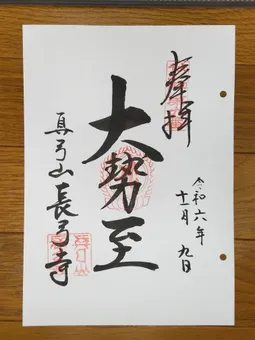 奉拝
令和六年
十一月九日
大勢至
真弓山長弓寺